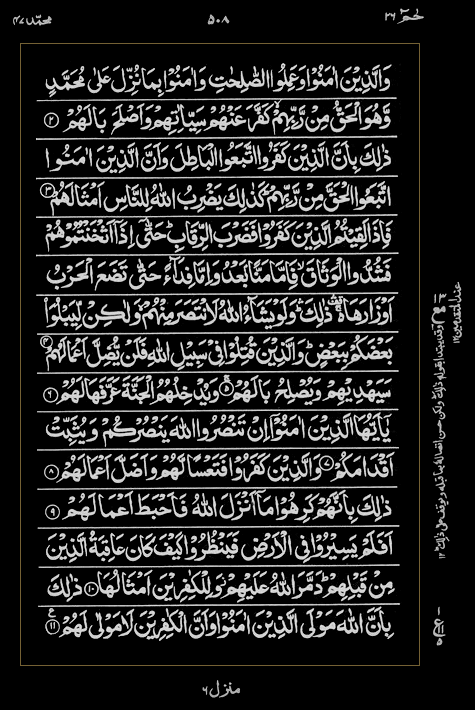 محمّد ٤٧
٥٠٨
حٰمٓ ٢٦
وَالَّذِيْنَ اٰمَنُوْا وَعَمِلُوا الصّٰلِحٰتِ وَاٰمَنُوْا بِمَا نُزِّلَ عَلٰى مُحَمَّدٍ
وَّهُوَ الْحَقُّ مِنْ رَّبِّهِمْ كَفَّرَ عَنْهُمْ سَيِّاٰتِهِمْ وَاَصْلَحَ بَالَهُمْ ۝٢
ذٰلِكَ بِاَنَّ الَّذِيْنَ كَفَرُوا اتَّبَعُوا الْبَاطِلَ وَاَنَّ الَّذِيْنَ اٰمَنُوا
اتَّبَعُوا الْحَقَّ مِنْ رَّبِّهِمْ كَذٰلِكَ يَضْرِبُ اللّٰهُ لِلنَّاسِ اَمْثَالَهُمْ ۝٣
فَاِذَا لَقِيْتُمُ الَّذِيْنَ كَفَرُوْا فَضَرْبَ الرِّقَابِ ؕ حَتّٰۤى اِذَاۤ اَثْخَنْتُمُوْهُمْ
فَشُدُّوا الْوَثَاقَ ۙ فَاِمَّا مَنًّۢا بَعْدُ وَاِمَّا فِدَآءً حَتّٰى تَضَعَ الْحَرْبُ
اَوْزَارَهَا ۛۚ ذٰلِكَ ؕۛ وَلَوْ يَشَآءُ اللّٰهُ لَانْتَصَرَ مِنْهُمْ وَلٰكِنْ لِّيَبْلُوَا۟
بَعْضَكُمْ بِبَعْضٍ ؕ وَالَّذِيْنَ قُتِلُوْا فِيْ سَبِيْلِ اللّٰهِ فَلَنْ يُّضِلَّ اَعْمَالَهُمْ ۝٤
سَيَهْدِيْهِمْ وَيُصْلِحُ بَالَهُمْ ۝٥ وَيُدْخِلُهُمُ الْجَنَّةَ عَرَّفَهَا لَهُمْ ۝٦
يٰۤاَيُّهَا الَّذِيْنَ اٰمَنُوْۤا اِنْ تَنْصُرُوا اللّٰهَ يَنْصُرْكُمْ وَيُثَبِّتْ
اَقْدَامَكُمْ ۝٧ وَالَّذِيْنَ كَفَرُوْا فَتَعْسًا لَّهُمْ وَاَضَلَّ اَعْمَالَهُمْ ۝٨
ذٰلِكَ بِاَنَّهُمْ كَرِهُوْا مَاۤ اَنْزَلَ اللّٰهُ فَاَحْبَطَ اَعْمَالَهُمْ ۝٩
اَفَلَمْ يَسِيْرُوْا فِي الْاَرْضِ فَيَنْظُرُوْا كَيْفَ كَانَ عَاقِبَةُ الَّذِيْنَ
مِنْ قَبْلِهِمْ ؕ دَمَّرَ اللّٰهُ عَلَيْهِمْ ؗ وَلِلْكٰفِرِيْنَ اَمْثَالُهَا ۝١٠ ذٰلِكَ
بِاَنَّ اللّٰهَ مَوْلَى الَّذِيْنَ اٰمَنُوْا وَاَنَّ الْكٰفِرِيْنَ لَا مَوْلٰى لَهُمْ ۝١١
منزل ٦